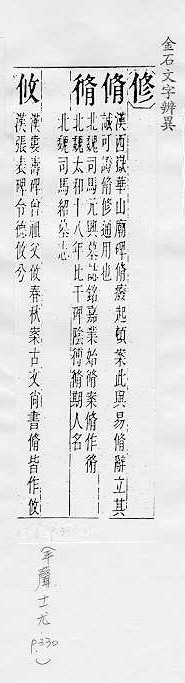 金石文字辨異
修
脩 漢西嶽華山廟碑脩廢起頓案此與易脩辭立其
誠可證脩修通用也
北魏司馬元興墓誌銘嘉業始脩案脩作
北魏太和十八年比干碑陰脩期人名
北魏司馬紹墓志
攸 漢婁壽碑曾祖父攸春秋案古文尚書脩皆作攸
漢張表碑令德攸兮
(平聲 士尤 p.330)